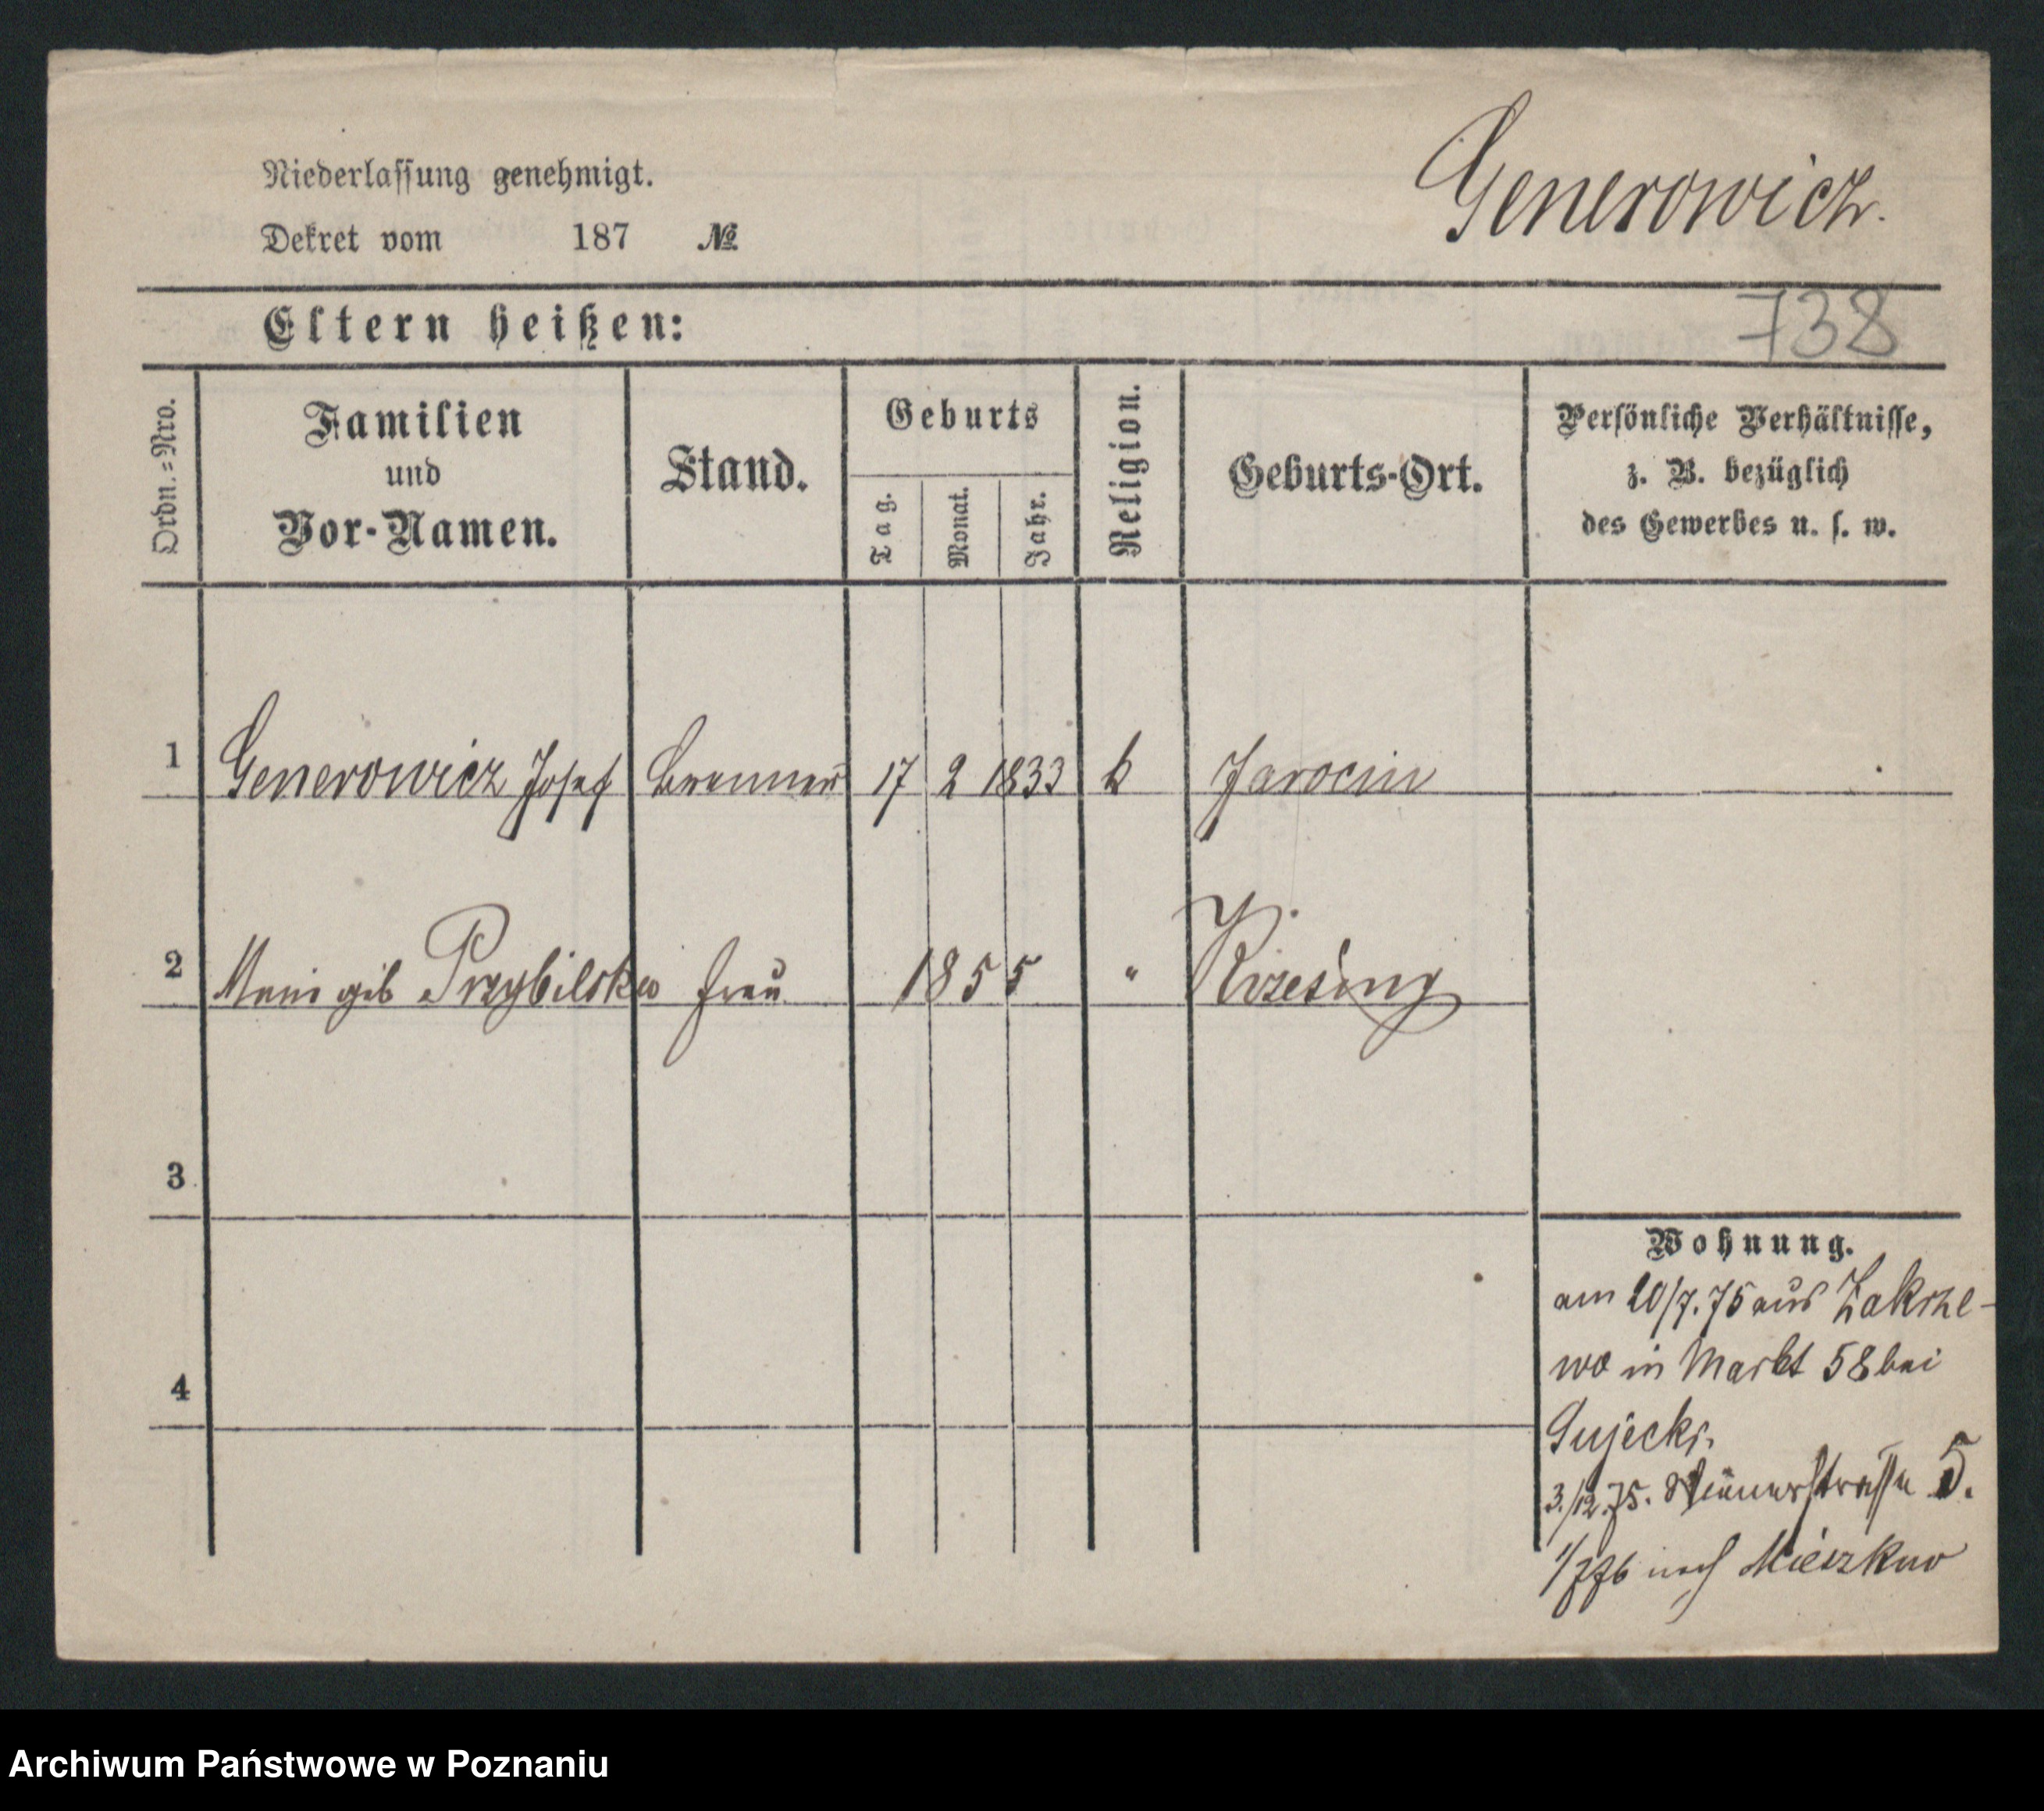 Generowicz.
Niederlassung genehmigt.
Dekret vom 187 №
Eltern heißen:
738
Ordn.=Nro.
Familien
und
Vor-Namen.
Stand.
Geburts
Tag.
Monat.
Jahr.
Religion.
Geburts-Ort.
Persönliche Verhältnisse,
z. B. bezüglich
des Gewerbes u. s. w.
1 Generowicz Josef Brenner 17 2 1833 k Jarocin
2 geb Przybilska Frau 1855 "
3
4
Wohnung.
am 20/7. 75 aus Zakrze-
wo in Markt 58 bei
Gujecki.
3./12. 75. 5.
1/7 76 nach Mieszkow
Archiwum Państwowe w Poznaniu